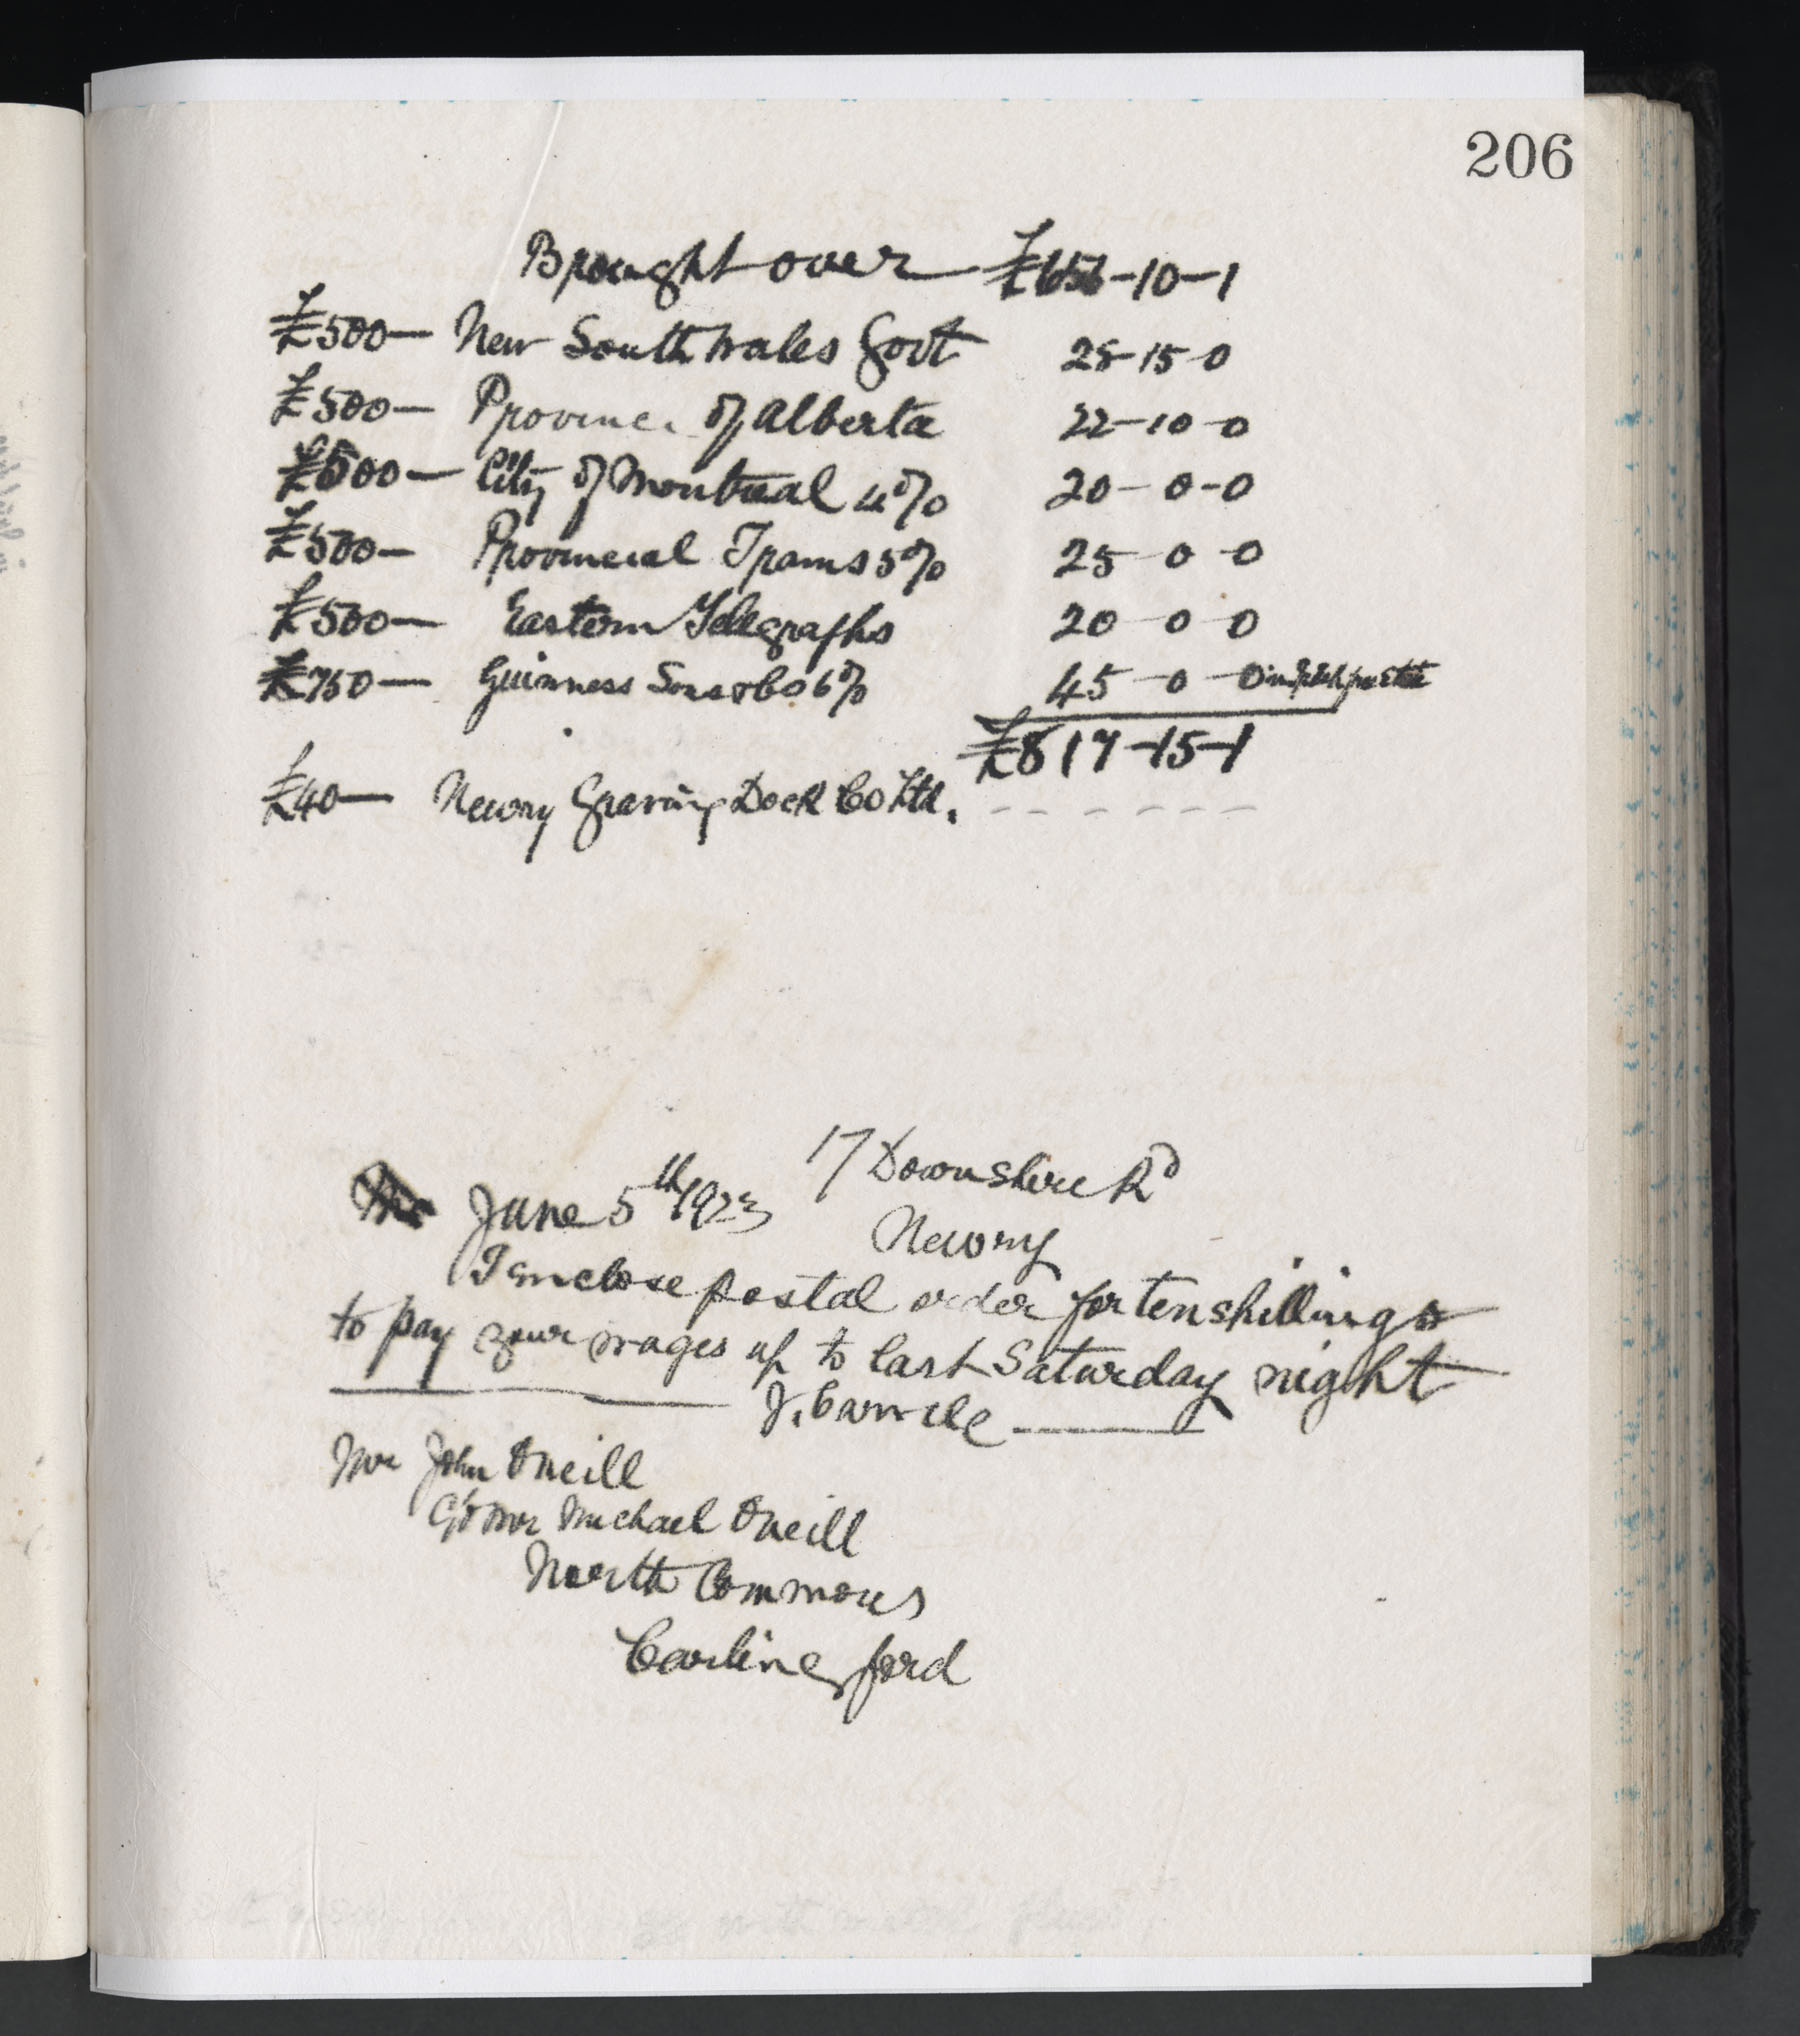 206
Brought over £656-10-1
£500— New South Wales Govt 28-15-0
£500— Province of Alberta 22-10-0
£500— City of Montreal 4% 20-0-0
£500— Provincial Trams 5% 25-0-0
£500— Eastern Telegraphs 20-0-0
£750— Guinness Sons & Co 6% 45-0-0
£817-15-1
£40— Newry Graving Dock Co Ltd. - - - - - -
17 Downshire Rd
June 5th 1923
Newry
I enclose postal order for ten shillings
to pay your wages up to last Saturday night
J. Carville
Mr John O'Neill
C/o Mr Michael O'Neill
North Commons
Carlingford